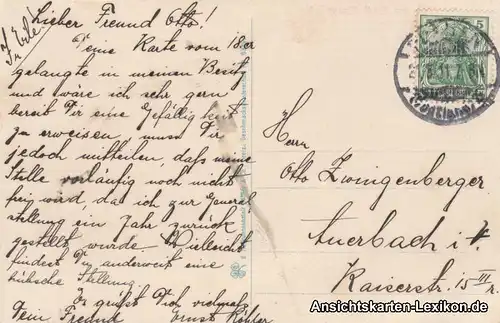 In Eile!
Lieber Freund Otto!
Deine Karte vom 18er
gelangte in meinen Besitz
und wäre ich sehr gern
bereit Dir eine Gefälligkeit
zu erweisen, muss Dir
jedoch mitteilen, dass meine
Stelle vorläufig noch nicht
frei wird, da ich zur General
stellung ein Jahr zurück
gestellt wurde. Vielleicht
findest Du anderweit eine
hübsche Stellung.
Es grüßt Dich vielmals
Dein Freund Ernst Köhler
Herrn
Otto Zwingenberger
Auerbach i. V.
Kaiserstr. 15 III r.
5
Ansichtskarten-Lexikon.de